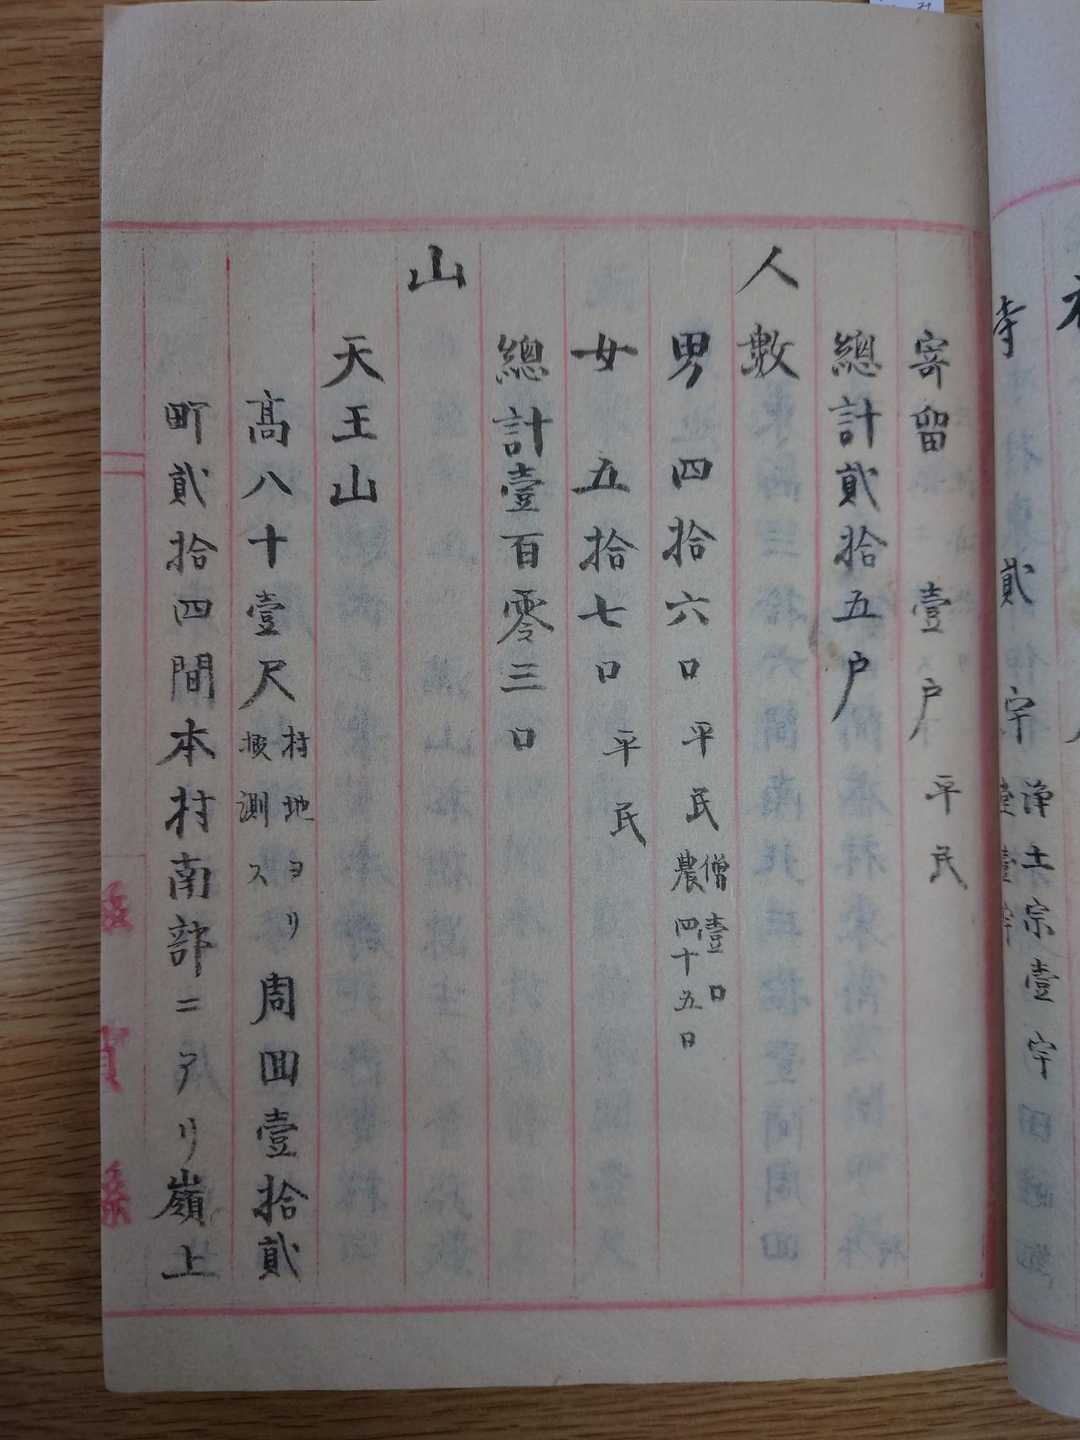 寺 貳宇 浄土宗壹宇
寄留 壹戸 平民
總計貳拾五戸
人數
男四拾六口 平民 僧壹口 農四十五口
女五拾七口 平民
總計壹百零三口
山
天王山
高八十壹尺 村地ヨリ測ス 周回壹拾貳
町貳拾四間本村南部ニアリ嶺上
滋賀縣